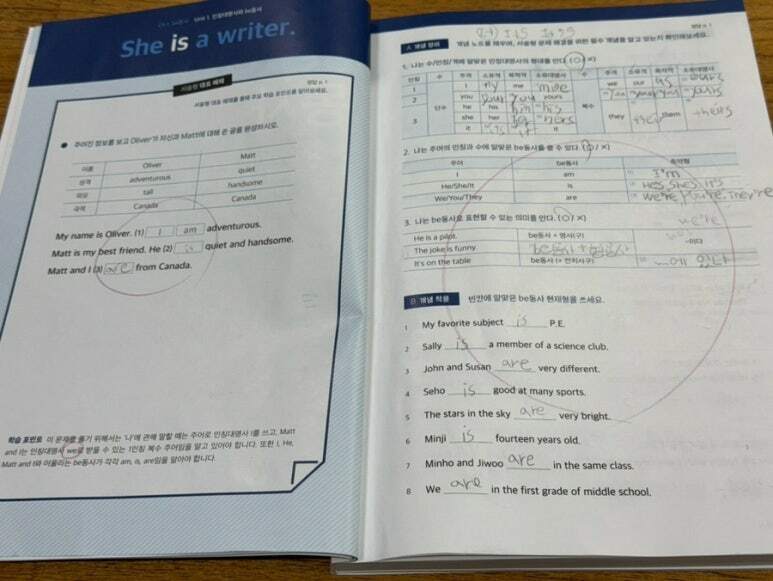 Unit 1. 인칭대명사와 be동사
She is a writer.
서술형 대표 예제
정답 p. 1
서술형 대표 예제를 통해 주요 학습 포인트를 알아보세요.
주어진 정보를 보고 Oliver가 자신과 Matt에 대해 쓴 글을 완성하시오.
이름 Oliver Matt
성격 adventurous quiet
외모 tall handsome
국적 Canada Canada
My name is Oliver. (1) I am adventurous.
Matt is my best friend. He (2) is quiet and handsome.
Matt and I (3) are from Canada.
학습 포인트 이 문제를 풀기 위해서는 '나'에 관해 말할 때는 주어로 인칭대명사 I를 쓰고, Matt
and I는 인칭대명사 we로 받을 수 있는 1인칭 복수 주어임을 알고 있어야 합니다. 또한 I, He,
Matt and I와 어울리는 be동사가 각각 am, is, are임을 알아야 합니다.
정답 p. 1
A 개념 정리 개념 노트를 채우며, 서술형 문제 해결을 위한 필수 개념을 알고 있는지 확인해보세요.
1. 나는 수/인칭/격에 알맞은 인칭대명사의 형태를 안다. (O / X)
인칭 수 주격 소유격 목적격 소유대명사 수 주격 소유격 목적격 소유대명사
1 단수 I my me mine 복수 we our us ours
2 you your you yours you your you yours
3 he his him his they their them theirs
she her her hers
it its it
2. 나는 주어의 인칭과 수에 알맞은 be동사를 쓸 수 있다. (O / X)
주어 be동사 축약형
I am I'm
He/She/It is He's, She's, It's
We/You/They are We're, You're, They're
3. 나는 be동사로 표현할 수 있는 의미를 안다. (O / X)
we're
He is a pilot. be동사 + 명사(구) ~이다
The joke is funny be동사 + 형용사
It's on the table be동사 (+ 전치사구) ~에 있다
B 개념 적용 빈칸에 알맞은 be동사 현재형을 쓰세요.
1 My favorite subject is P.E.
2 Sally is a member of a science club.
3 John and Susan are very different.
4 Seho is good at many sports.
5 The stars in the sky are very bright.
6 Minji is fourteen years old.
7 Minho and Jiwoo are in the same class.
8 We are in the first grade of middle school.